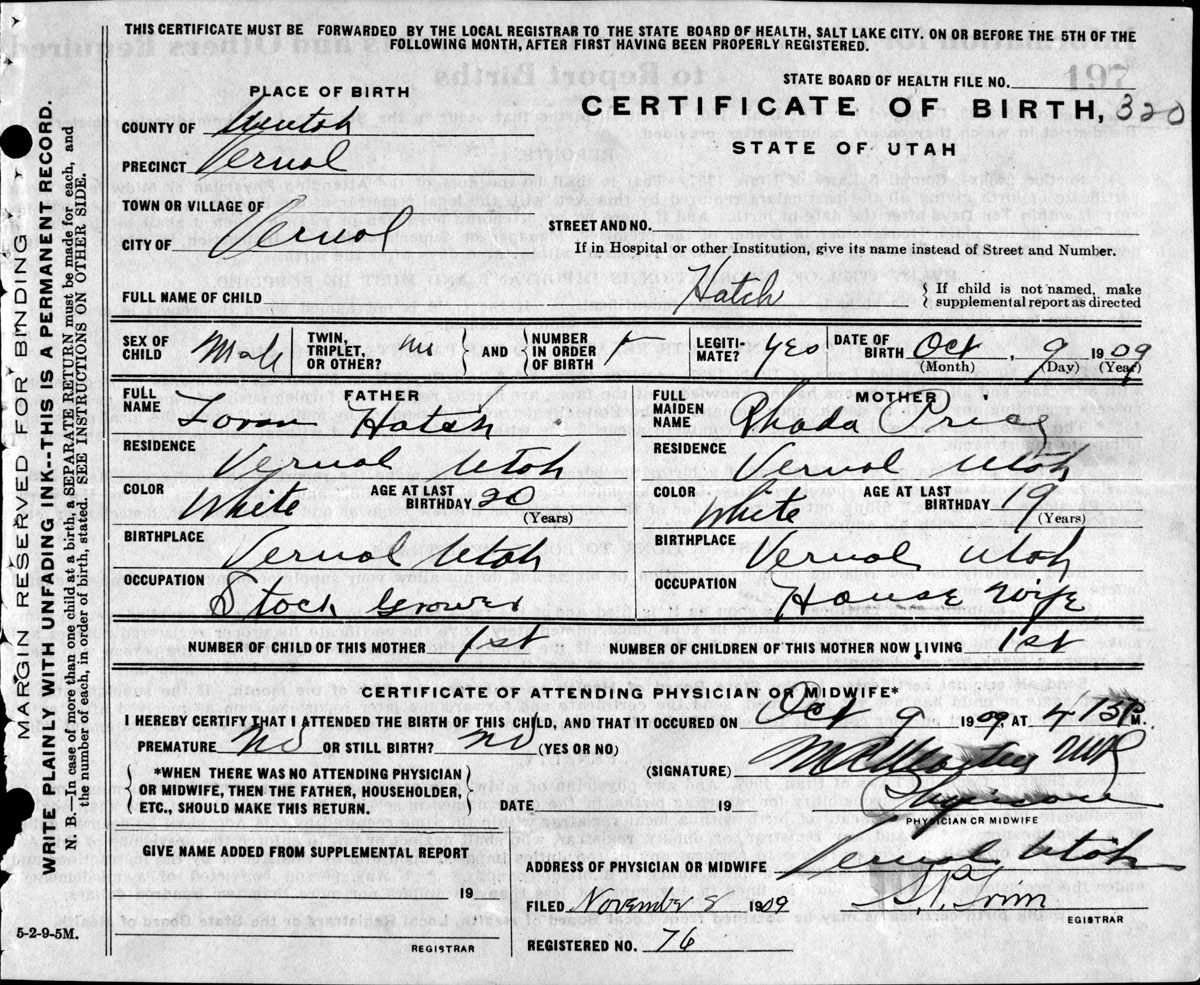 THIS CERTIFICATE MUST BE FORWARDED BY THE LOCAL REGISTRAR TO THE STATE BOARD OF HEALTH, SALT LAKE CITY. ON OR BEFORE THE 5TH OF THE
FOLLOWING MONTH, AFTER FIRST HAVING BEEN PROPERLY REGISTERED.
MARGIN RESERVED FOR BINDING
WRITE PLAINLY WITH UNFADING INK--THIS IS A PERMANENT RECORD.
N. B.—In case of more than one child at a birth, SEPARATE RETURN must be made for each, and
the number of each, in order of birth, stated. SEE INSTRUCTIONS ON OTHER SIDE.
STATE BOARD OF HEALTH FILE NO.
197
PLACE OF BIRTH
CERTIFICATE OF BIRTH, 320
STATE OF UTAH
COUNTY OF Uintah
PRECINCT Vernal
TOWN OR VILLAGE OF
CITY OF Vernal
STREET AND NO.
If in Hospital or other Institution, give its name instead of Street and Number.
FULL NAME OF CHILD Hatch
If child is not named, make
supplemental report as directed
SEX OF CHILD Male TWIN, TRIPLET, OR OTHER? no AND NUMBER IN ORDER OF BIRTH LEGITI-MATE? Yes DATE OF BIRTH Oct, 9 1909
(Month) (Day) (Year)
FATHER
FULL NAME Loran Hatch
RESIDENCE Vernal Utah
COLOR White AGE AT LAST BIRTHDAY 20
(Years)
BIRTHPLACE Vernal Utah
OCCUPATION Stock Grower
MOTHER
FULL MAIDEN NAME Rhoda
RESIDENCE Vernal Utah
COLOR White AGE AT LAST BIRTHDAY 19
(Years)
BIRTHPLACE Vernal Utah
OCCUPATION House Wife
NUMBER OF CHILD OF THIS MOTHER 1st NUMBER OF CHILDREN OF THIS MOTHER NOW LIVING 1st
CERTIFICATE OF ATTENDING PHYSICIAN OR MIDWIFE*
I HEREBY CERTIFY THAT I ATTENDED THE BIRTH OF THIS CHILD, AND THAT IT OCCURED ON Oct 9 1909, AT M.
PREMATURE No OR STILL BIRTH? No (YES OR NO)
*WHEN THERE WAS NO ATTENDING PHYSICIAN
OR MIDWIFE, THEN THE FATHER, HOUSEHOLDER,
ETC., SHOULD MAKE THIS RETURN.
(SIGNATURE)
DATE 19 Physician
PHYSICIAN OR MIDWIFE
GIVE NAME ADDED FROM SUPPLEMENTAL REPORT
19
REGISTRAR
ADDRESS OF PHYSICIAN OR MIDWIFE Vernal Utah
FILED November 1909
EGISTRAR
REGISTERED NO. 76
5-2-9-5M.